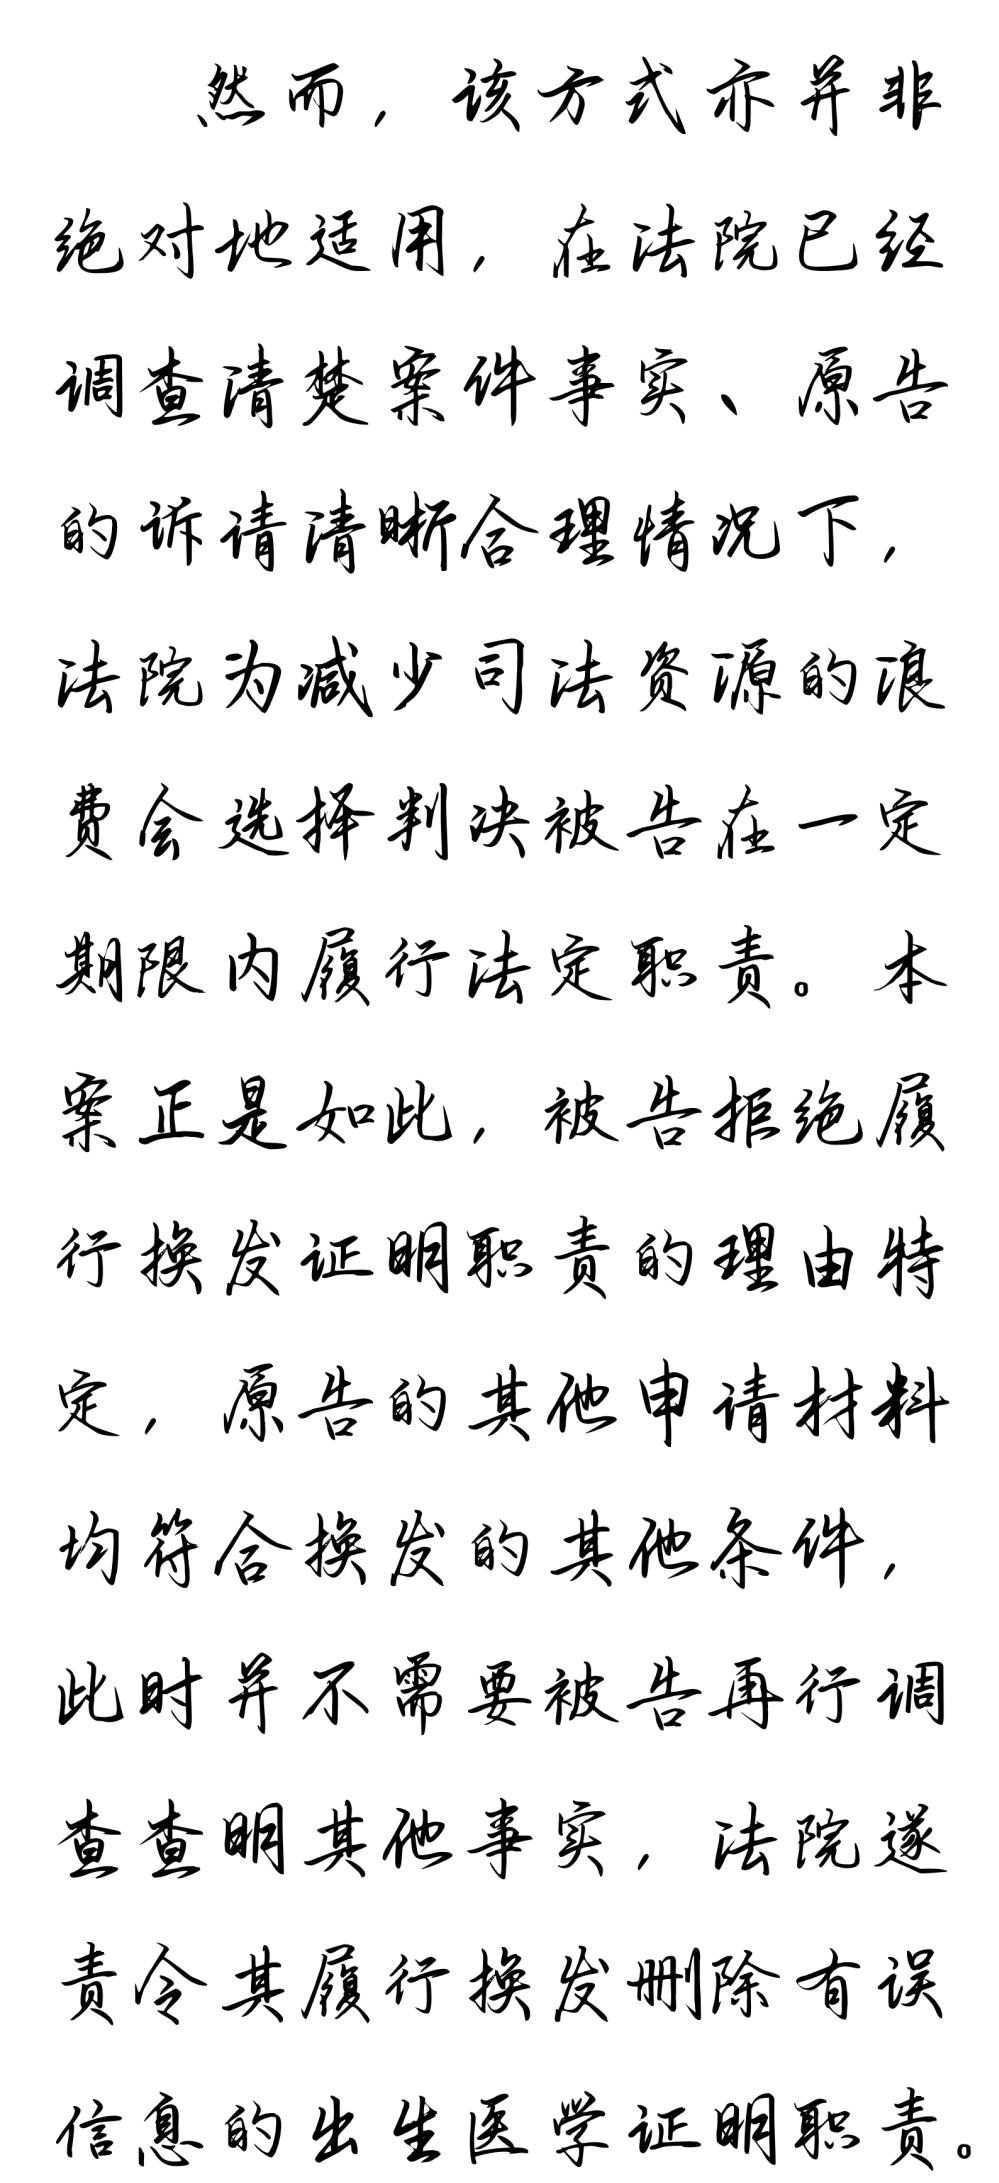 然而，该方式亦并非
绝对地适用，在法院已经
调查清楚案件事实、原告
的诉请清晰合理情况下，
法院为减少司法资源的浪
费会选择判决被告在一定
期限内履行法定职责。本
案正是如此，被告拒绝履
行换发证明职责的理由特
定，原告的其他申请材料
均符合换发的其他条件，
此时并不需要被告再行调
查查明其他事实，法院遂
责令其履行换发删除有误
信息的出生医学证明职责。